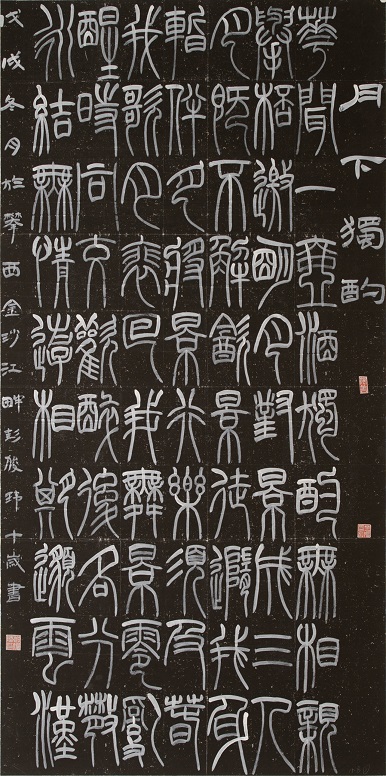 月下獨酌
華閒一壺酒獨酌無相親
舉桮邀朙月對景成三人
月既不解飲景徒隨我身
暫伴月將景行樂須及春
我歌月裴回我舞景零亂
醒時同交歡醉後各分散
永結無情遊相期邈雲漢
戊戌冬月於攀西金沙江畔彭駿瑋十歲書